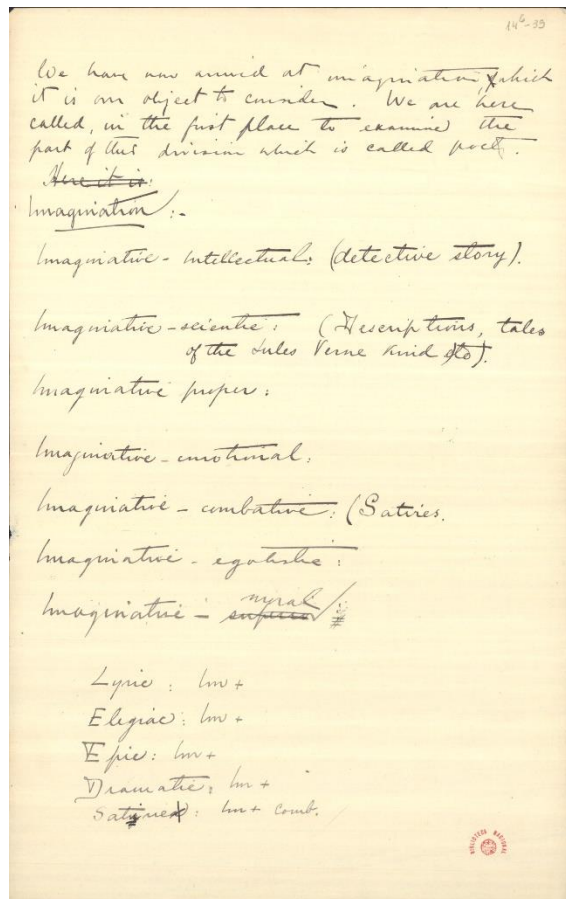 14⁶-39
We have now arrived at imagination, which
it is our object to consider. We are here
called, in the first place to examine the
part of this division which is called poet.
Here it is:
Imagination:-
Imaginative - intellectual: (detective story).
Imaginative - scientic: (Descriptions, tales
of the Jules Verne kind etc).
Imaginative proper:
Imaginative - emotional:
Imaginative - combative: (Satires.
Imaginative - egotistic:
moral
Imaginative -
Lyric: Im +
Elegiac: Im +
Epic: Im +
Dramatic: Im +
Satire: Im + comb.
BIBLIOTECA NACIONAL